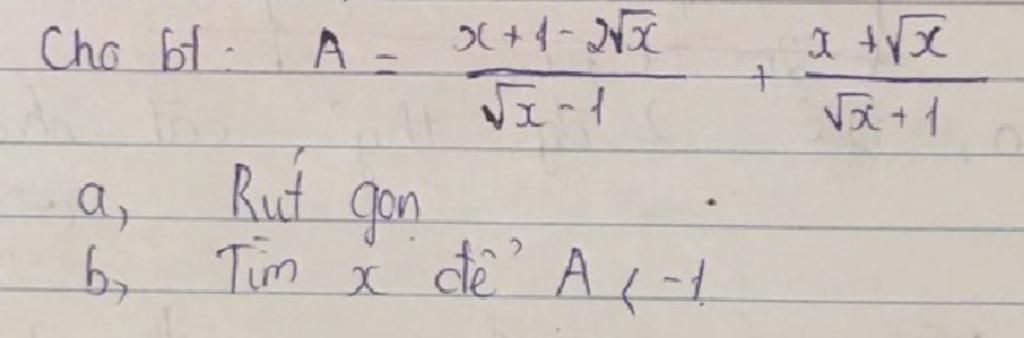 Cho bt: A = \frac{x+1-2\sqrt{x}}{\sqrt{x}-1} + \frac{x+\sqrt{x}}{\sqrt{x}+1}
a, Rút gọn
b, Tìm x để A < -1